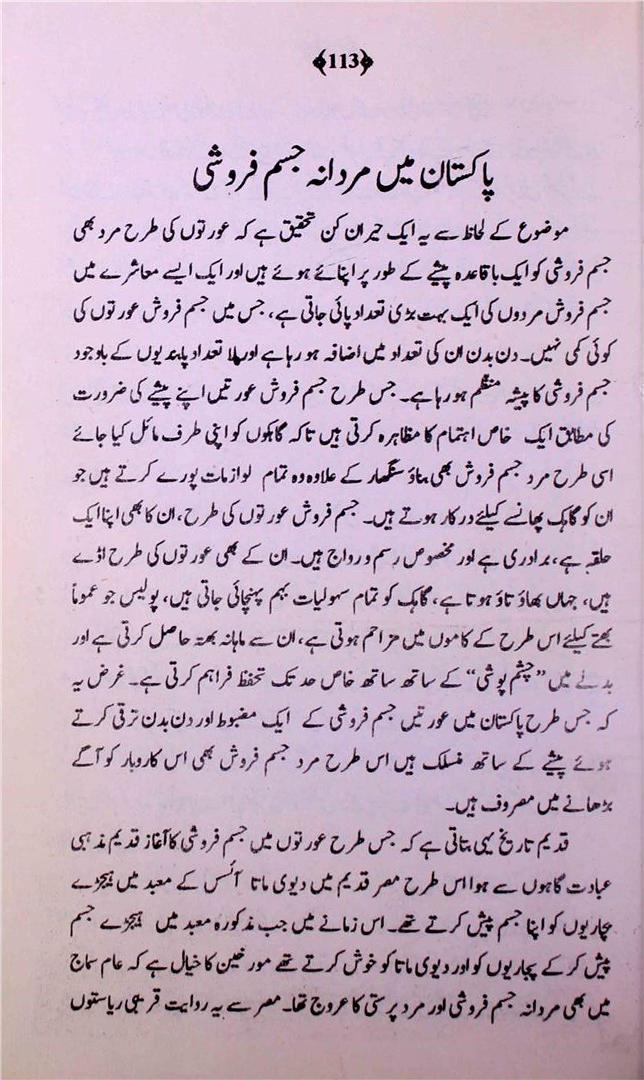 ﴿113﴾
پاکستان میں مردانہ جسم فروشی
موضوع کے لحاظ سے یہ ایک حیران کن تحقیق ہے کہ عورتوں کی طرح مرد بھی
جسم فروشی کو ایک باقاعدہ پیشے کے طور پر اپنائے ہوئے ہیں اور ایک ایسے معاشرے میں
جسم فروش مردوں کی ایک بہت بڑی تعداد پائی جاتی ہے، جس میں جسم فروش عورتوں کی
کوئی کمی نہیں۔ دن بدن ان کی تعداد میں اضافہ ہو رہا ہے اور بلا تعداد پابندیوں کے باوجود
جسم فروشی کا پیشہ منظم ہو رہا ہے۔ جس طرح جسم فروش عورتیں اپنے پیشے کی ضرورت
کی مطابق ایک خاص اہتمام کا مظاہرہ کرتی ہیں تاکہ گاہکوں کو اپنی طرف مائل کیا جائے
اسی طرح مرد جسم فروش بھی بناؤ سنگھار کے علاوہ وہ تمام لوازمات پورے کرتے ہیں جو
ان کو گاہک پھانسے کیلئے درکار ہوتے ہیں۔ جسم فروش عورتوں کی طرح، ان کا بھی اپنا ایک
حلقہ ہے، برادری ہے اور مخصوص رسم و رواج ہیں۔ ان کے بھی عورتوں کی طرح اڈے
ہیں، جہاں بھاؤ تاؤ ہوتا ہے، گاہک کو تمام سہولیات بہم پہنچائی جاتی ہیں، پولیس جو عموماً
بھتے کیلئے اس طرح کے کاموں میں مزاحم ہوتی ہے، ان سے ماہانہ بھتہ حاصل کرتی ہے اور
بدلے میں ”چشم پوشی“ کے ساتھ ساتھ خاص حد تک تحفظ فراہم کرتی ہے۔ غرض یہ
کہ جس طرح پاکستان میں عورتیں جسم فروشی کے ایک مضبوط اور دن بدن ترقی کرتے
ہوئے پیشے کے ساتھ منسلک ہیں اس طرح مرد جسم فروش بھی اس کاروبار کو آگے
بڑھانے میں مصروف ہیں۔
قدیم تاریخ یہی بتاتی ہے کہ جس طرح عورتوں میں جسم فروشی کا آغاز قدیم مذہبی
عبادت گاہوں سے ہوا اس طرح مصر قدیم میں دیوی ماتا آئسں کے معبد میں ہیجڑے
پجاریوں کو اپنا جسم پیش کرتے تھے۔ اس زمانے میں جب مذکورہ معبد میں ہیجڑے جسم
پیش کر کے پجاریوں کو اور دیوی ماتا کو خوش کرتے تھے مورخین کا خیال ہے کہ عام سماج
میں بھی مردانہ جسم فروشی اور مرد پرستی کا عروج تھا۔ مصر سے یہ روایت قریبی ریاستوں